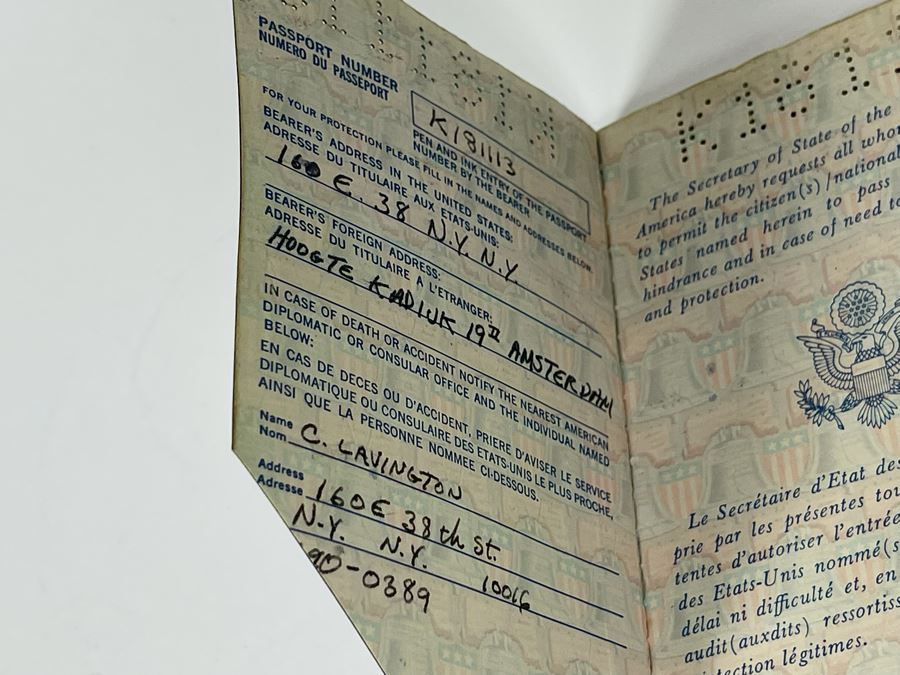 PASSPORT NUMBER
NUMERO DU PASSEPORT
K181113
PEN AND INK ENTRY OF THE PASSPORT
NUMBER BY THE BEARER
FOR YOUR PROTECTION PLEASE FILL IN THE NAMES AND ADDRESSES BELOW.
BEARER'S ADDRESS IN THE UNITED STATES:
ADRESSE DU TITULAIRE AUX ETATS-UNIS:
160 E. 38 N.Y. N.Y.
BEARER'S FOREIGN ADDRESS:
ADRESSE DU TITULAIRE A L'ETRANGER:
HOOGTE KADIJK 19II AMSTERDAM
IN CASE OF DEATH OR ACCIDENT NOTIFY THE NEAREST AMERICAN
DIPLOMATIC OR CONSULAR OFFICE AND THE INDIVIDUAL NAMED
BELOW:
EN CAS DE DECES OU D'ACCIDENT, PRIERE D'AVISER LE SERVICE
DIPLOMATIQUE OU CONSULAIRE DES ETATS-UNIS LE PLUS PROCHE,
AINSI QUE LA PERSONNE NOMMEE CI-DESSOUS.
Name
Nom C. LAVINGTON
Address
Adresse 160 E 38th St.
N.Y. N.Y. 10016
90-0389
K1811
The Secretary of State of the
America hereby requests all whom
to permit the citizen(s)/national
States named herein to pass
hindrance and in case of need to
and protection.
Le Secrétaire d'Etat des
prie par les présentes tou
tentes d'autoriser l'entrée
des Etats-Unis nommé(s
délai ni difficulté et, en
audit(auxdits) ressortiss
tection légitimes.